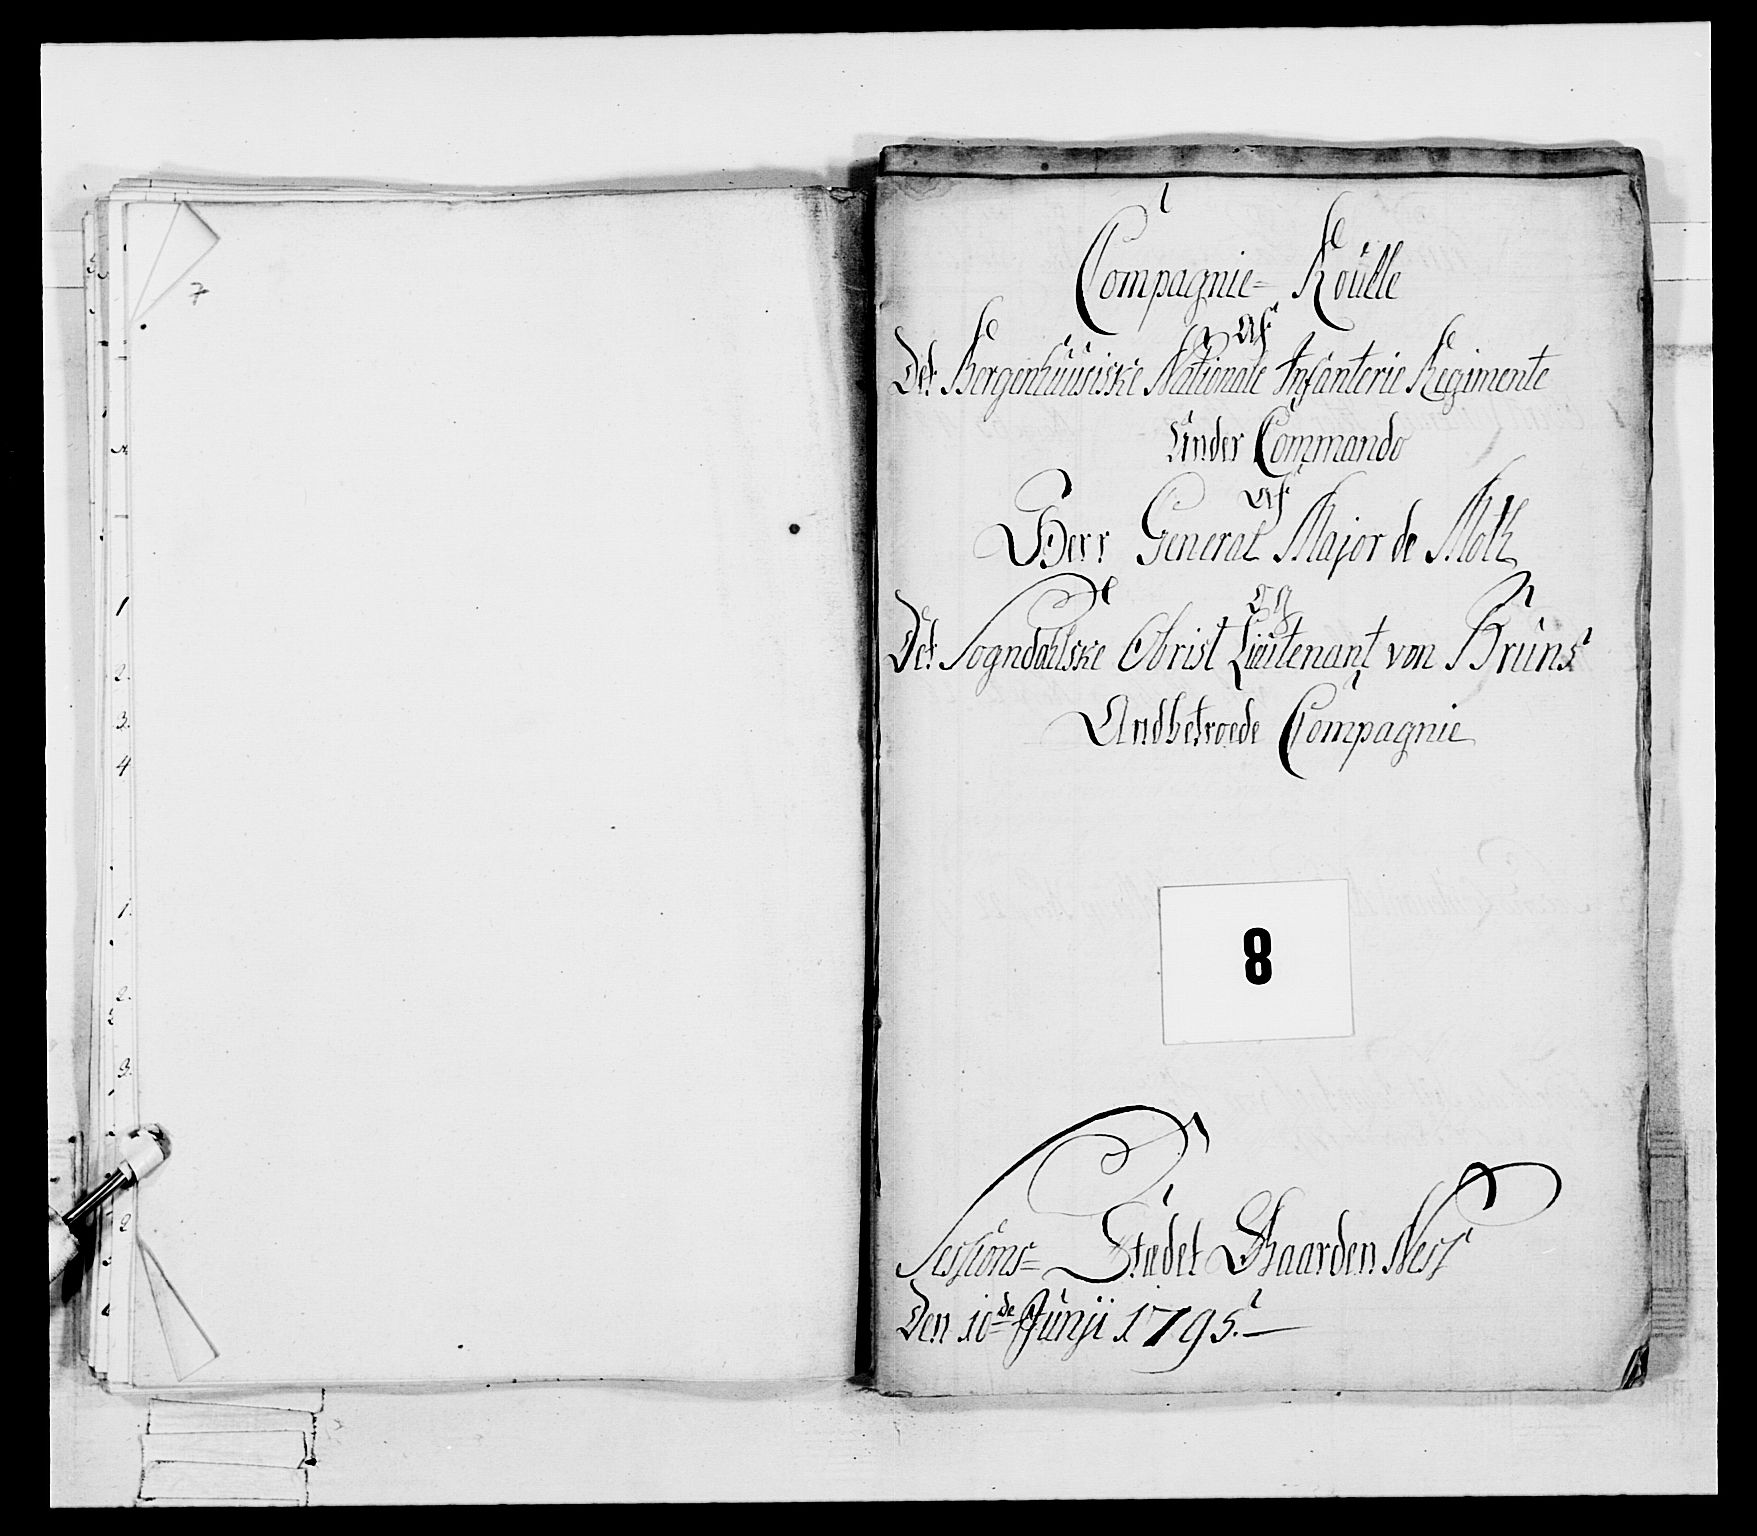 7
1
2.
3.
4
1.
2.
3.
2
Compagnie= Roülle
Af
Det Bergenhüüsiske Nationale Infanterie Regimente
Ünder Commando
Af
Herr General Major de Moltz
Og
Det Sogndahlske Obrist Lieütenant von Brüns
Andbetroede Compagnie
8
Sessions= Stædet Gaarden Næss
Den 10de Junji 1795.